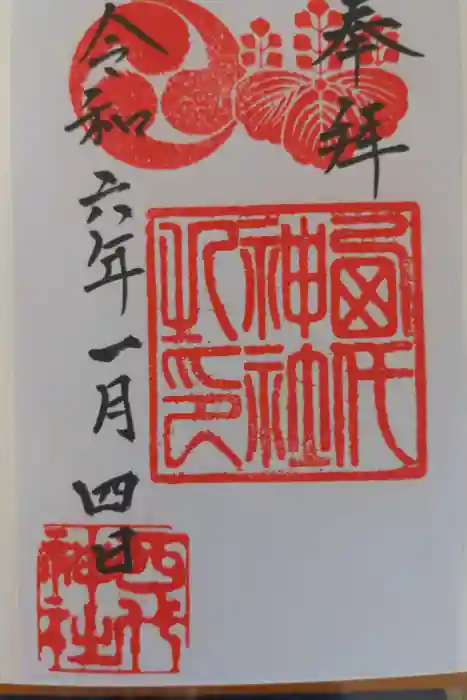 奉拝
神社
之印
令和六年一月四日
四代
神社